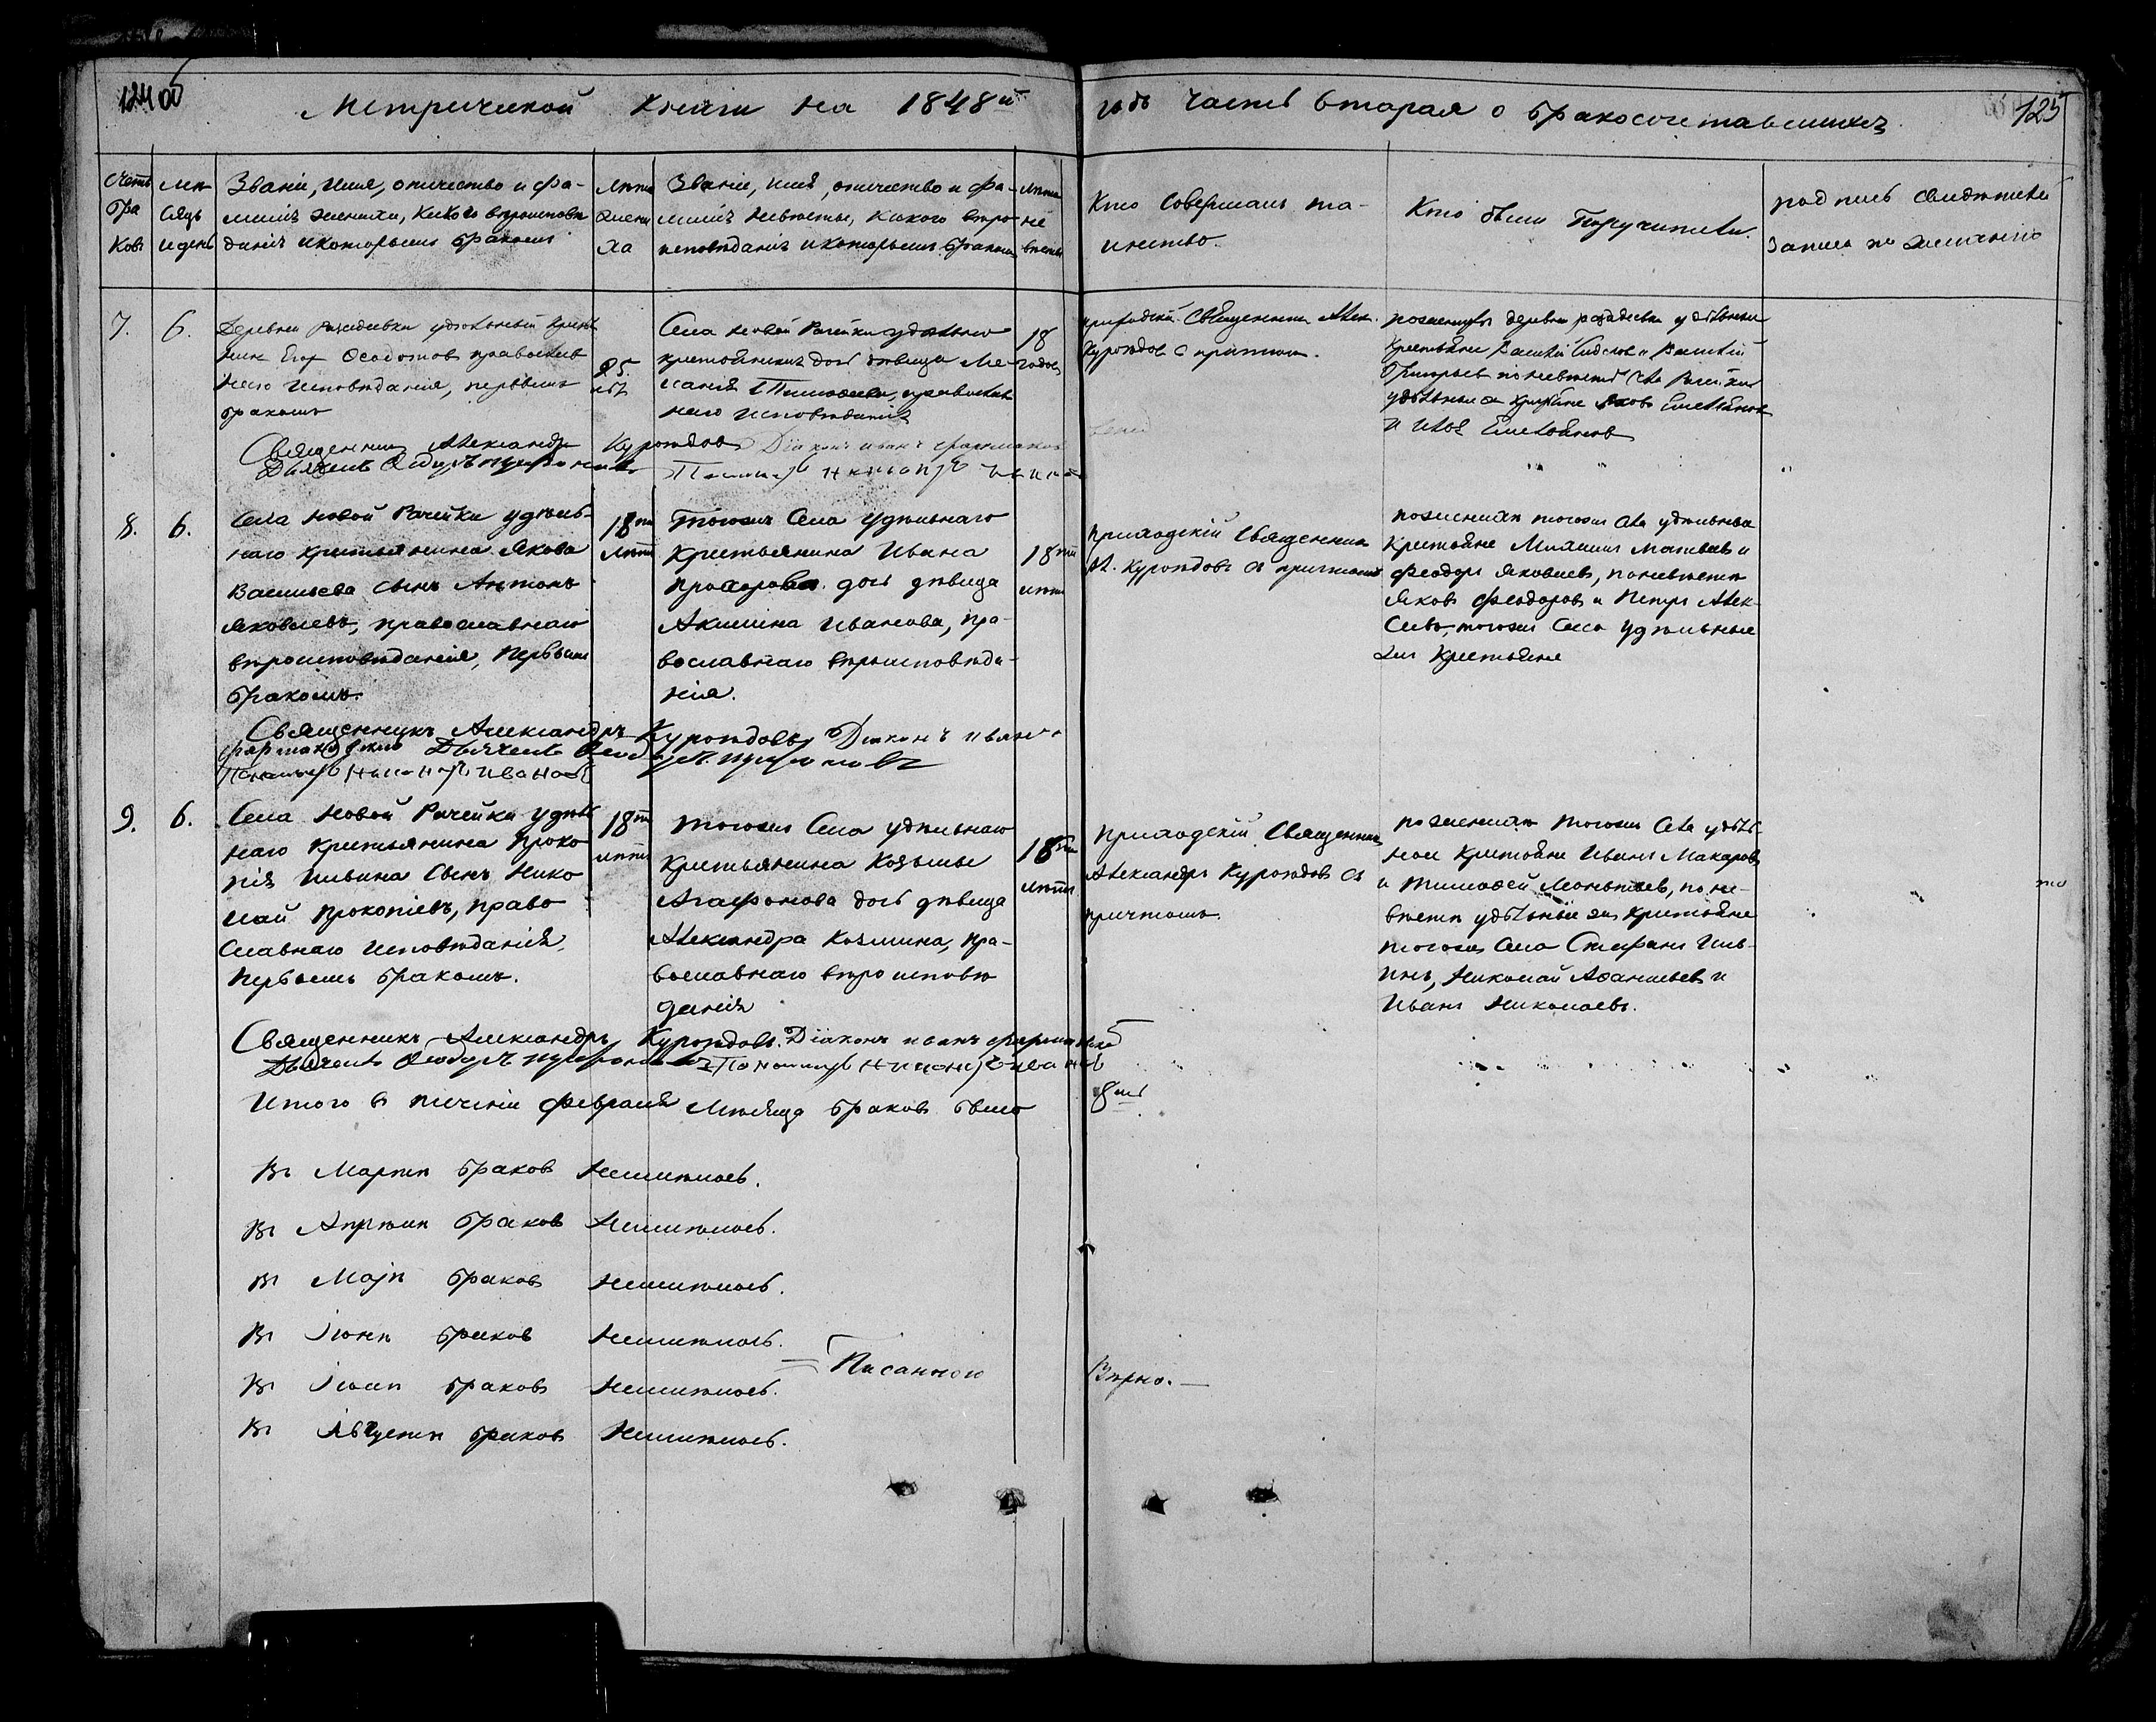 124 об
Метрической Книги на 1848й годъ часть вторая о бракосочетавшихся
125
Счетъ бра ковъ
мѣ сяцъ и день
Званіе, имя, отчество и фа-
миліч жениха, какого вѣроисповѣ
данія и которымъ бракомъ
лѣта жени ха
Званіе, имя, отчество и фа-
миліч невѣсты, какого вѣро-
исповѣданія и которымъ бракомъ
лѣта не вѣсты
Кто совершалъ та-
инство.
Кто были Поручители.
подпись свидѣтелей
записи по желанію
7.
6.
Деревни удѣльный крестья
нинъ Егор Ѳеодотовъ православ
наго исповѣданія, первымъ
бракомъ
25.
лѣт
Села Новой Рачейки удѣльнаго
крестьянина дочь дѣвица Ме-
ланія Тимоѳеева, православ
наго исповѣданія
18
годов
приходскій Священникъ Алек.
Куроѣдов с причтом.
по женихѣ деревни удѣльные
крестьяне Василій и Василій
Григорьев по невѣстѣ села Рачейки
удѣльные ж крестьяне Яковъ Емельянов
и Емельянов
Священникъ Александр Куроѣдов Діаконъ иванъ
Дьячекъ Ѳедоръ
Пономарь Никанор
8.
6.
Села Новой Рачейки удѣль-
наго крестьянина Якова
Васильева сынъ Антонъ
Яковлевъ, православнаго
вѣроисповѣданія, первымъ
бракомъ.
18ти
лѣтъ
Тогожъ Села удѣльнаго
крестьянина Ивана
Прохорова дочь дѣвица
Акилина Иванова, пра-
вославнаго вѣроисповѣда-
нія.
18ти
лѣтъ
Приходскій Священникъ
Ал. Куроѣдовъ съ причтомъ
по женихѣ тогожъ села удѣльные
Крестьяне Михаилъ Матвѣев и
Феодоръ Яковлев, по невѣстѣ
Яковъ Феодоровъ и Петръ Алек-
сѣевъ, тогожъ Села удѣльные
жъ Крестьяне
Священникъ Александръ Куроѣдовъ Діаконъ иванъ
Дьячекъ Ѳеодоръ
Пономарь Никаноръ Ивановъ
9.
6.
Села Новой Рачейки удѣль
наго Крестьянина Проко
пія Ильина Сынъ Нико
лай Прокопіевъ, право
славнаго исповѣданія,
первымъ бракомъ.
18ти
лѣтъ
тогожъ Села удѣльнаго
Крестьянина Козьмы
Агафонова дочь дѣвица
Александра Козмина, пра-
вославнаго вѣроисповѣ
данія
18ти
лѣтъ
Приходскій Священникъ
Александръ Куроѣдовъ съ
причтомъ
по женихѣ тогожъ села удѣль-
ные крестьяне Иванъ Макаровъ
и Тимоѳей Леонтьевъ, по не-
вѣстѣ удѣльные жъ крестьяне
тогожъ Села Стефанъ Иль-
инъ, Николай Аѳанасьевъ и
Иванъ Николаевъ.
Священникъ Александръ Куроѣдовъ. Діаконъ иванъ
Дьячекъ Ѳеодоръ Пономарь Никаноръ Ивановъ
Итого в теченіи февраля Мѣсяца браковъ было
Въ Мартѣ браковъ Неимѣлось.
Въ Апрѣлѣ браковъ Неимѣлось.
Въ Маѣ браковъ Неимѣлось.
Въ Іюнѣ браковъ Неимѣлось.
Въ Іюлѣ браковъ Неимѣлось.
Въ Августѣ браковъ Неимѣлось.
Вѣрно.